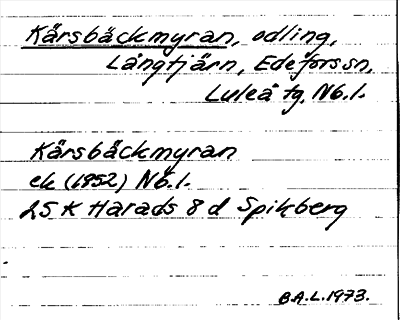 Kårsbäckmyran, odling,
Långtjärn, Edefors sn,
Luleå tg, Nb.l.
Kårsbäckmyran
ek (1952) Nb.l.
25 K Harads 8 d Spikberg
B.A.L. 1973.